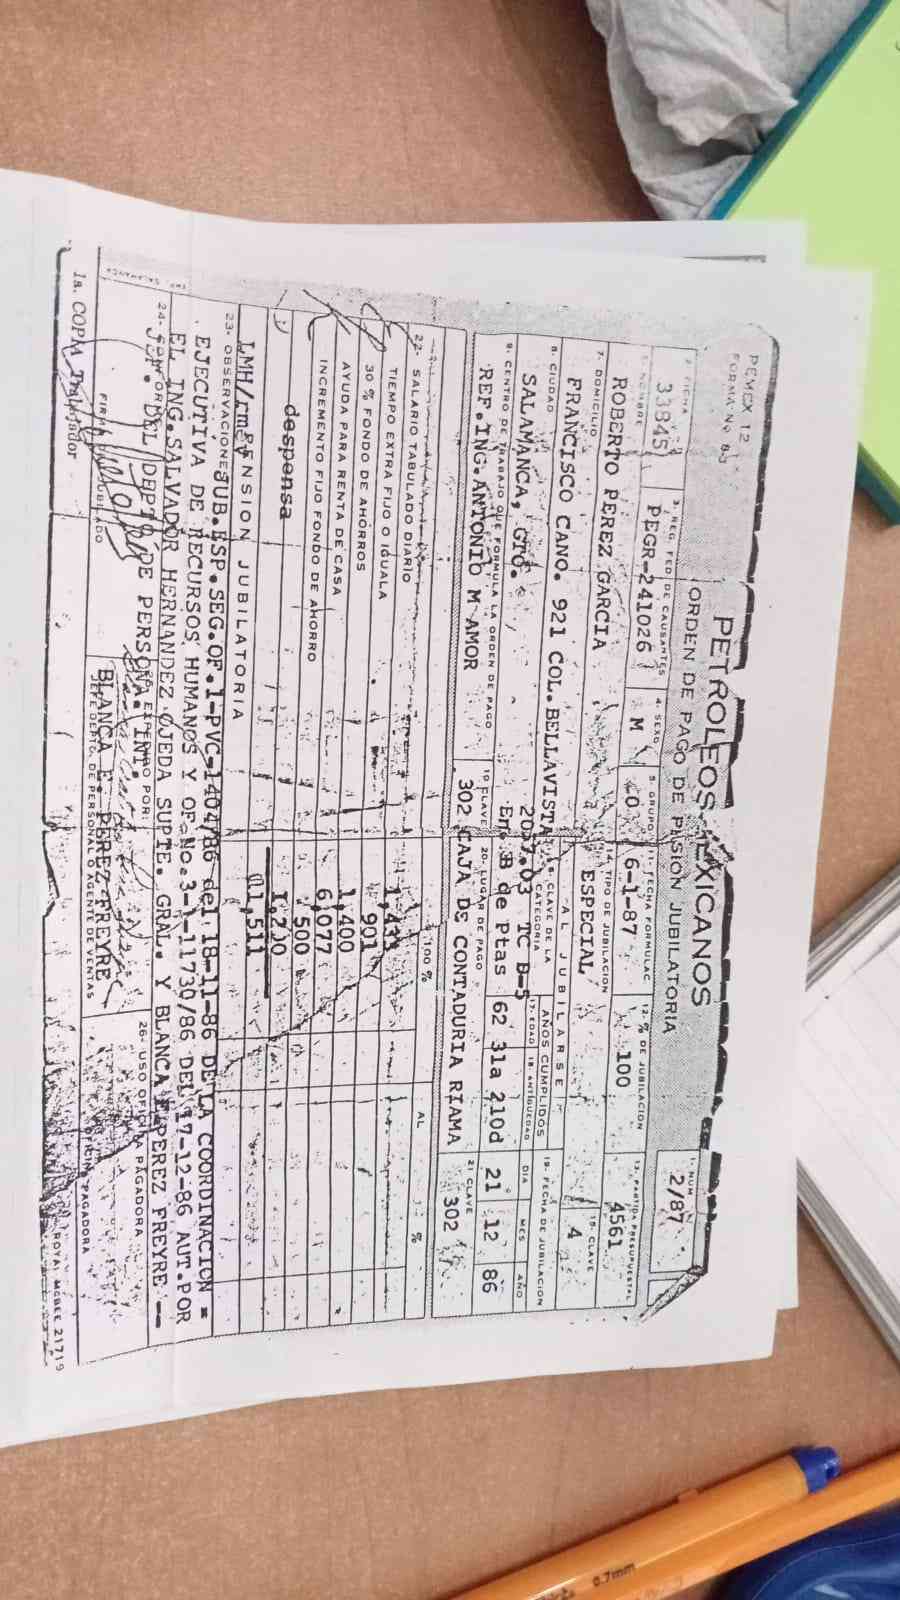 PEMEX 12
FORMA No 83
PETROLEOS MEXICANOS
ORDEN DE PAGO DE PENSION JUBILATORIA
1- NUM
2/87
2- FICHA
33845
3- REG. FED. DE CAUSANTES
PEGR-241026
4- SEXO
M
5- GRUPO
11- FECHA FORMULAC
6-1-87
12- % DE JUBILACION
100
13- PARTIDA PRESUPUESTAL
4561
NOMBRE
ROBERTO PEREZ GARCIA
14- TIPO DE JUBILACION
ESPECIAL
15- CLAVE
4
7- DOMICILIO
FRANCISCO CANO. 921 COL. BELLAVISTA
AL JUBILARSE
8- CIUDAD
SALAMANCA, GTO.
CLAVE DE LA CATEGORIA
2037.03 TC B-5
En. B de Ptas
AÑOS CUMPLIDOS
17- EDAD 18- ANTIGUEDAD
62 31a 210d
19- FECHA DE JUBILACION
DIA MES AÑO
21 12 86
9- CENTRO DE TRABAJO QUE FORMULA LA ORDEN DE PAGO
REF. ING. ANTONIO M AMOR
10- CLAVE
302
20- LUGAR DE PAGO
CAJA DE CONTADURIA RIAMA
21 CLAVE
302
100 %
AL %
22- SALARIO TABULADO DIARIO 1,433
TIEMPO EXTRA FIJO O IGUALA 901
30 % FONDO DE AHORROS 1,400
AYUDA PARA RENTA DE CASA 6,077
INCREMENTO FIJO FONDO DE AHORRO 500
despensa 1,200
PENSION JUBILATORIA 11,511
LMH/rmer
23- OBSERVACIONES JUB. ESP. SEG. OF. 1-PVC-1404/86 del 18-11-86 DE LA COORDINACION =
EJECUTIVA DE RECURSOS HUMANOS Y OF. No. 3-1-11730/86 DEL 17-12-86 AUT. POR
EL ING. SALVADOR HERNANDEZ OJEDA SUPTE. GRAL. Y BLANCA E PEREZ FREYRE --
JEF. DEL DEPTO DE PERSONAL INT.
24- CONFORME
FIRMA JUBILADO
25- EXPEDIDO POR:
BLANCA E. PEREZ FREYRE
JEFE DEPTO. DE PERSONAL O AGENTE DE VENTAS
26- USO OFICINA PAGADORA
OFICINA PAGADORA
1a. COPIA Trabajador
ROYAL MCBEE 21719
0.7mm